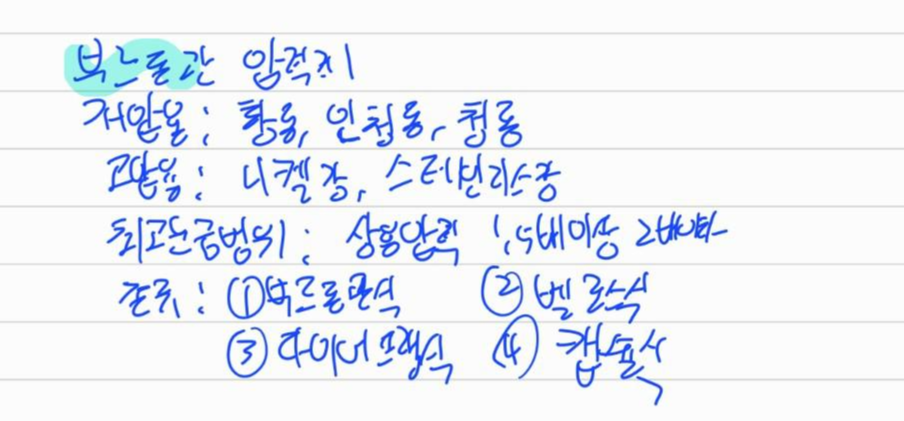 부르돈관 압력계
저압용: 황동, 인청동, 청동
고압용: 니켈강, 스테인리스강
최고눈금범위: 상용압력 1.5배이상 2배이하
종류: ①부르돈관식 ②벨로스식
③다이어프램식 ④캡슐식